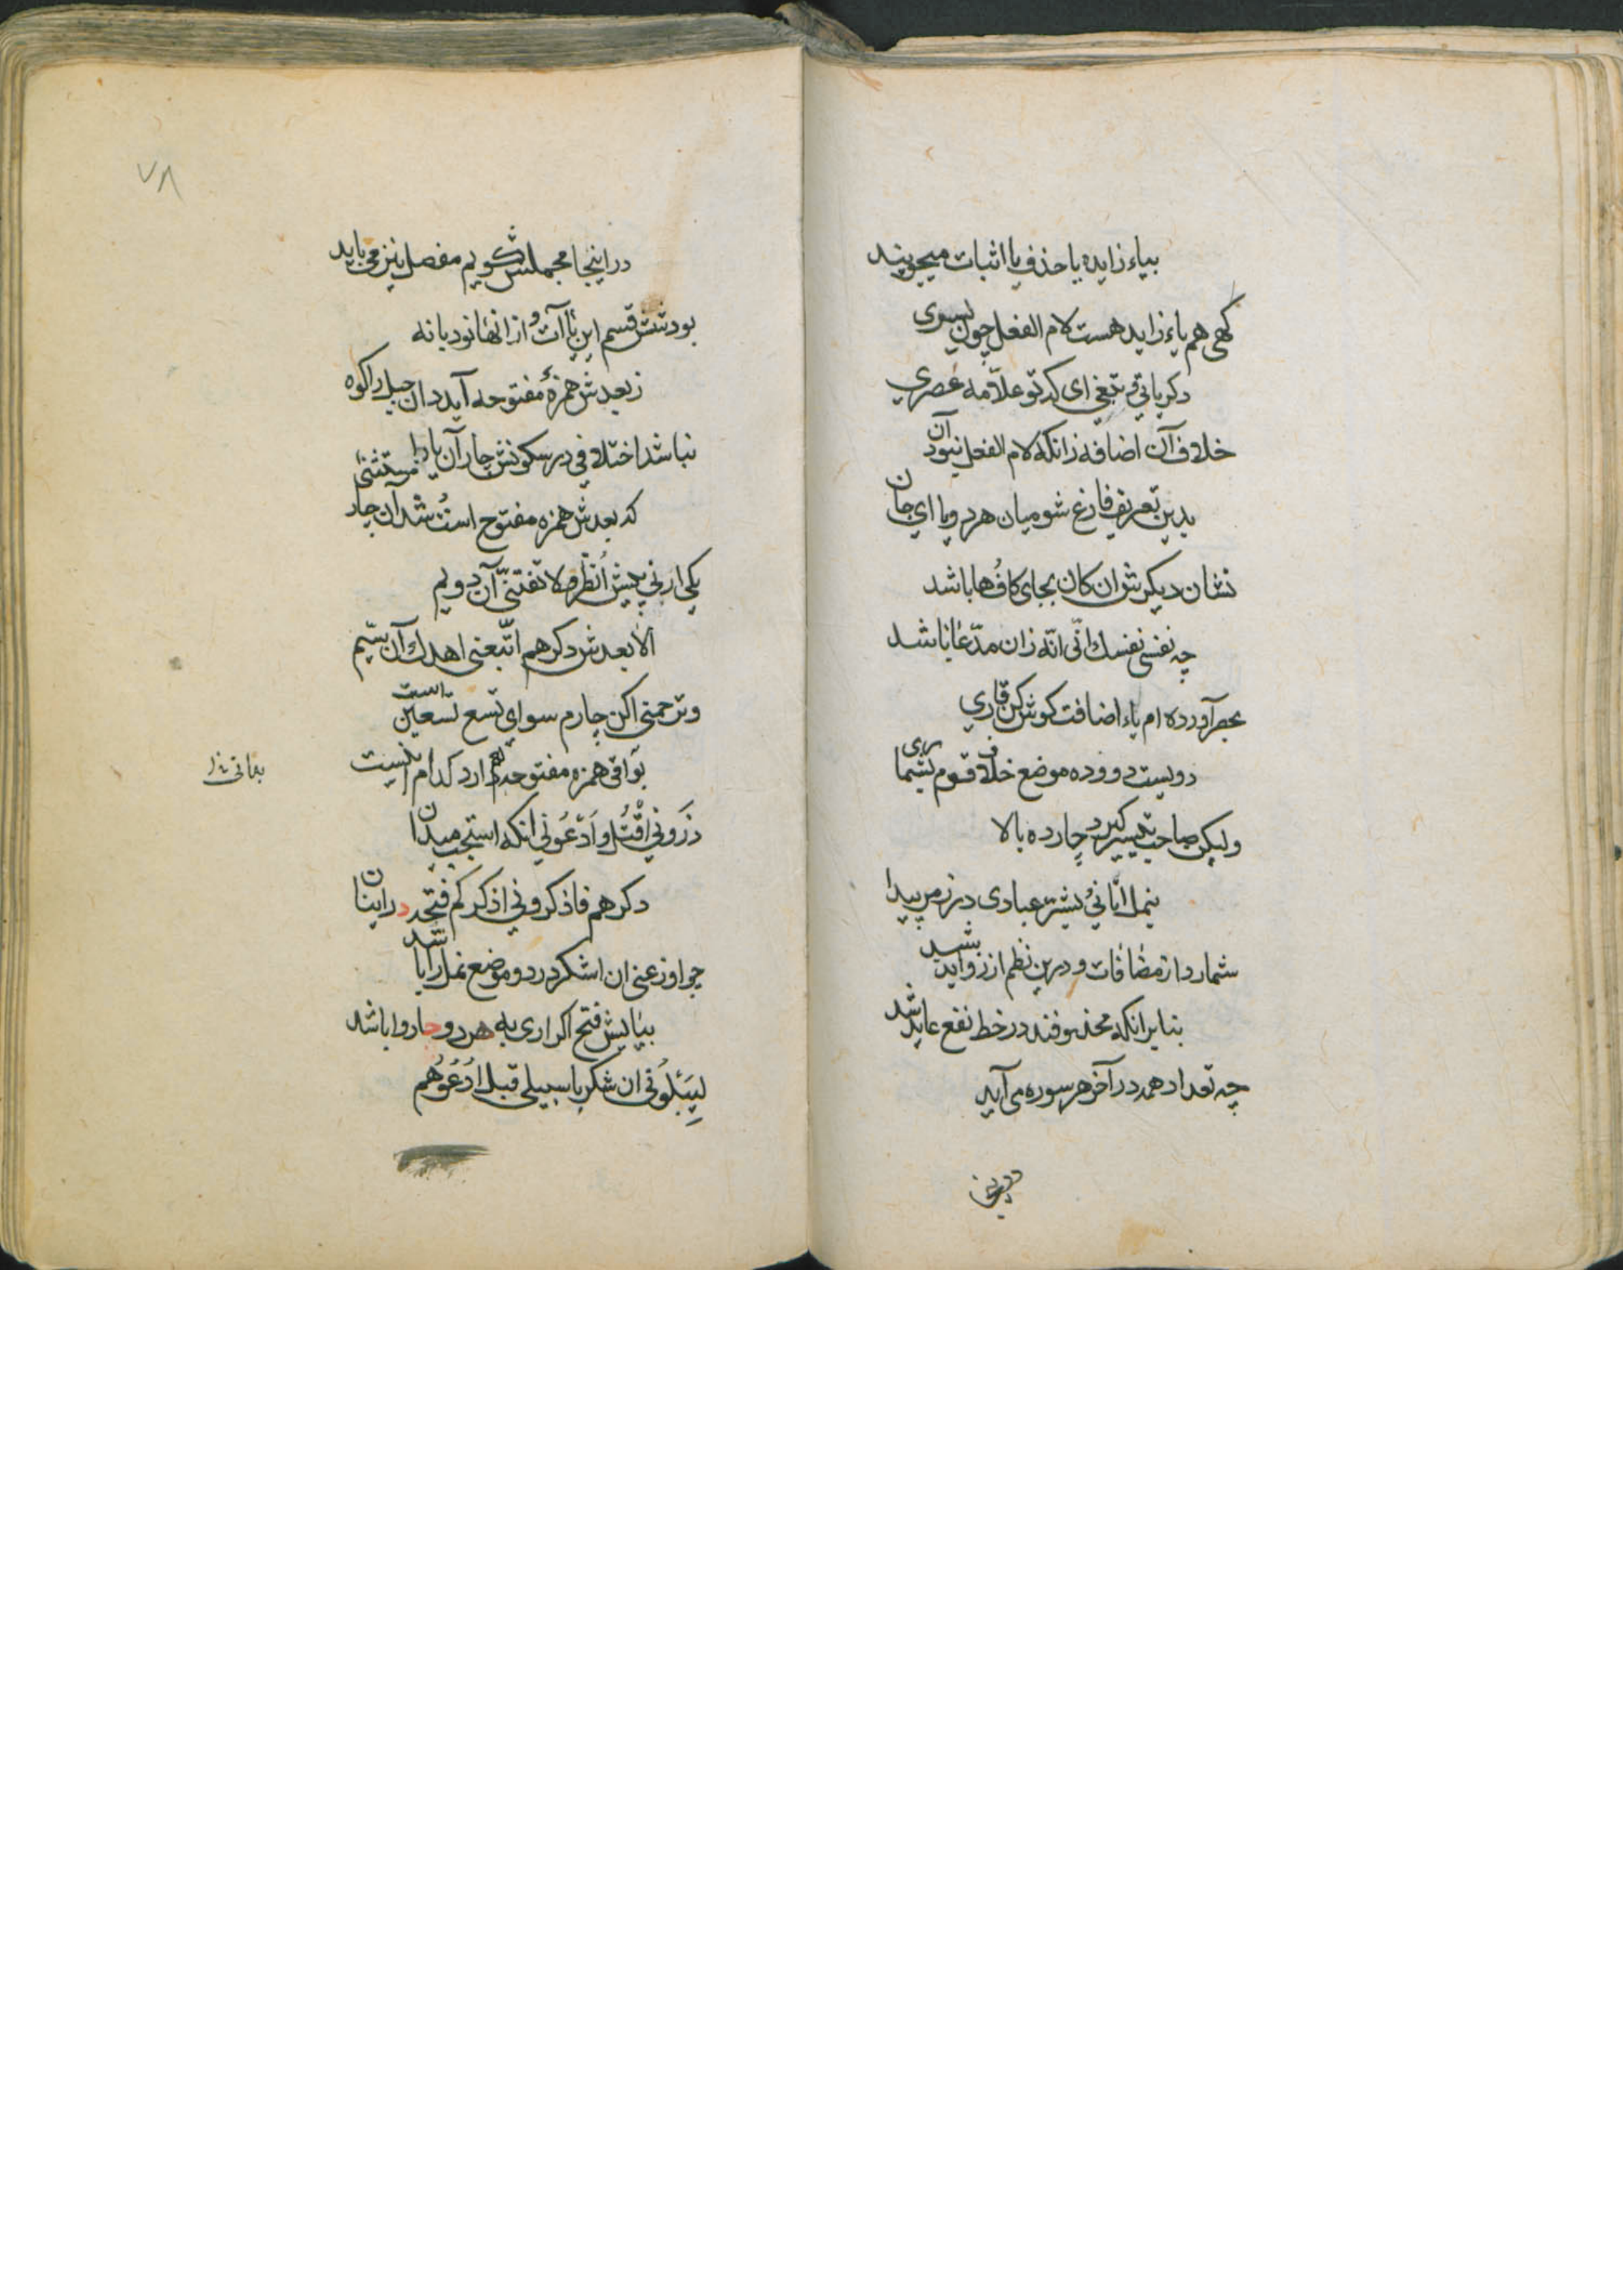 بیاء زایده یا حذف یا اثبات میجویند
کهی هم یاء زاید هست لام الفعل چون یسری
دکر یاتی و نبغی ای که تو علامه عصری
خلاف آن اضافه زانکه لام الفعل نبود آن
بدین تعریف فارغ شو میان هر دو یا ای جان
نشان دیکرش ان کان بجای کاف ها باشد
چه نفسی نفسك انّی انّه زان مدّعانا باشد
بحر آورده ام یاء اضافت کوش کن قاری
دویست و دوده موضع خلاف قوم بشماری
ولیکن صاحب تیسیر کیرد چارده بالا
بنمل اتانی بشر عبادی در زمر پیدا
شمارد از مضافات و درین نظم از زواید شد
بنابر انکه محذوفند در خط نفع عاید شد
چه تعداد همه در آخر هر سوره می آید
درین
۷۸
در اینجا مجملش کویم مفصل نیز می باید
بود شش قسم این یاآت و از انها نود با نه
ز بعدش همزهٔ مفتوحه آید دان جبل را کوه
نباشد اختلافی در سکونش چار آن یا را مستثنی
که بعدش همزه مفتوح است شد آن چار
یکی ارنی پیش اُنظر ولا تفتنّی آن دویم
الا بعدش دکر هم اتّبعنی اهدك آن سیّم
وترحمنی اکن چارم سوای تسع تسعین است
بواقی همزه مفتوحه دارد کدام اینست
بیاتی
ذَرونی اقتُل و اَدعُونی انکه استجب میدان
دکر هم فاذکرونی اذکرکم فتحه در اینان
چو اوزعنی ان اشکر در دو موضع نمل را یا شد
بیایش فتح اکر اری به هر دو جا روا باشد
لیَبلُونی ان شکر با سبیلی قبل ادعوهم